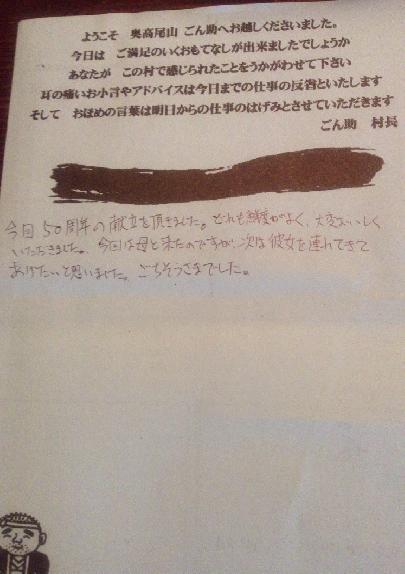 ようこそ　奥高尾山　ごん助へお越しくださいました。
今日は　ご満足のいくおもてなしが出来ましたでしょうか
あなたが　この村で感じられたことをうかがわせて下さい
耳の痛いお小言やアドバイスは今日までの仕事の反省といたします
そして　おほめの言葉は明日からの仕事のはげみとさせていただきます
ごん助　村長
今回50周年の献立を頂きました。どれも鮮度がよく、大変おいしく
いただきました。今回は母と来たのですが、次は彼女を連れてきて
あげたいと思いました。ごちそうさまでした。